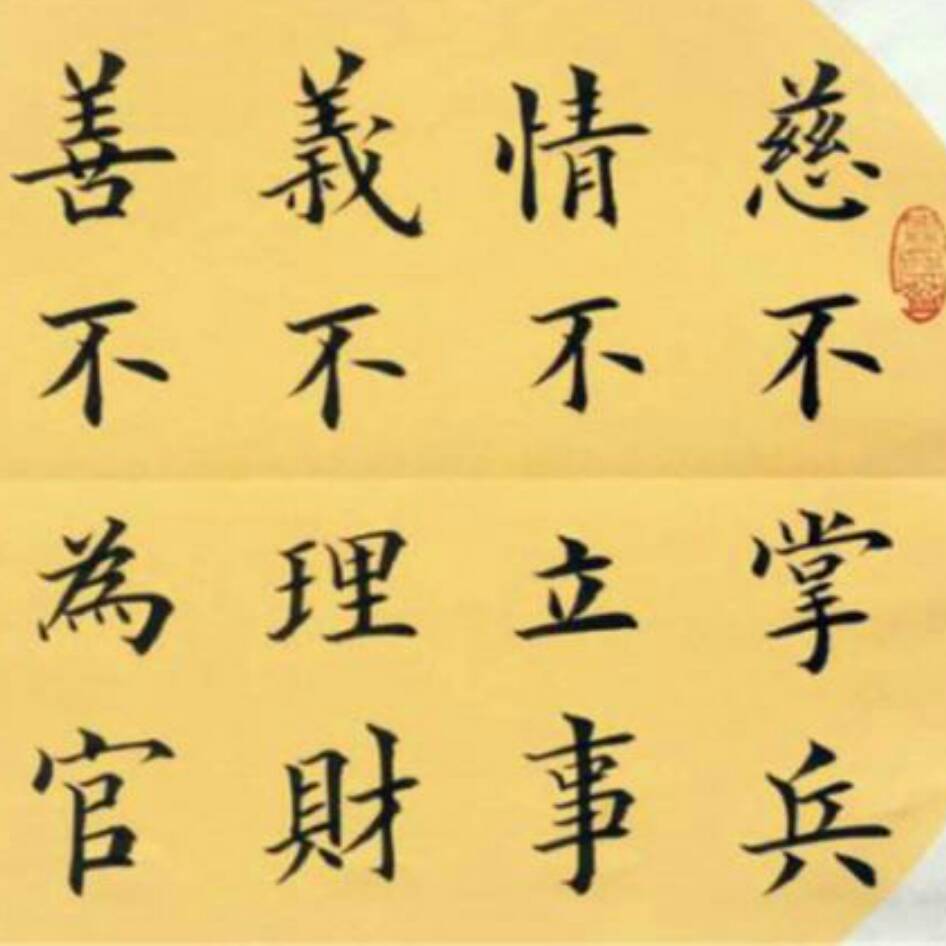 慈不掌兵
情不立事
義不理財
善不為官